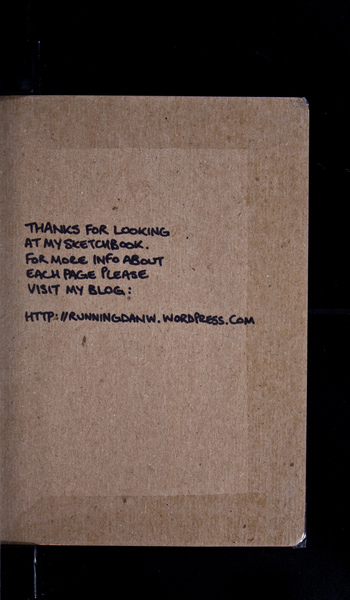 THANKS FOR LOOKING
AT MY SKETCHBOOK.
FOR MORE INFO ABOUT
EACH PAGE PLEASE
VISIT MY BLOG:
HTTP://RUNNINGDANW.WORDPRESS.COM